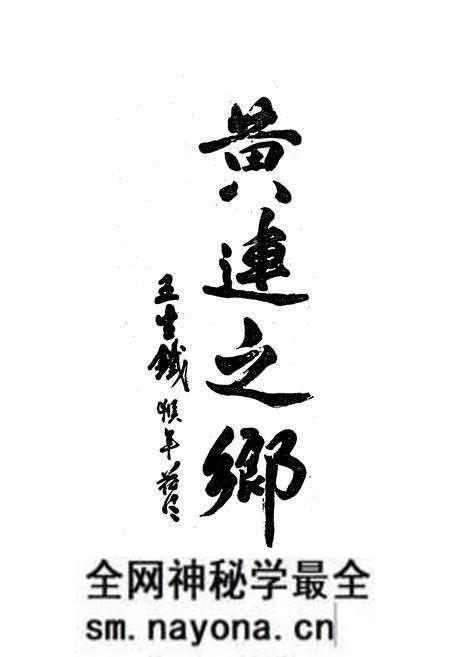 黄連之鄉
王生鐵 猴年
全网神秘学最全
sm.nayona.cn